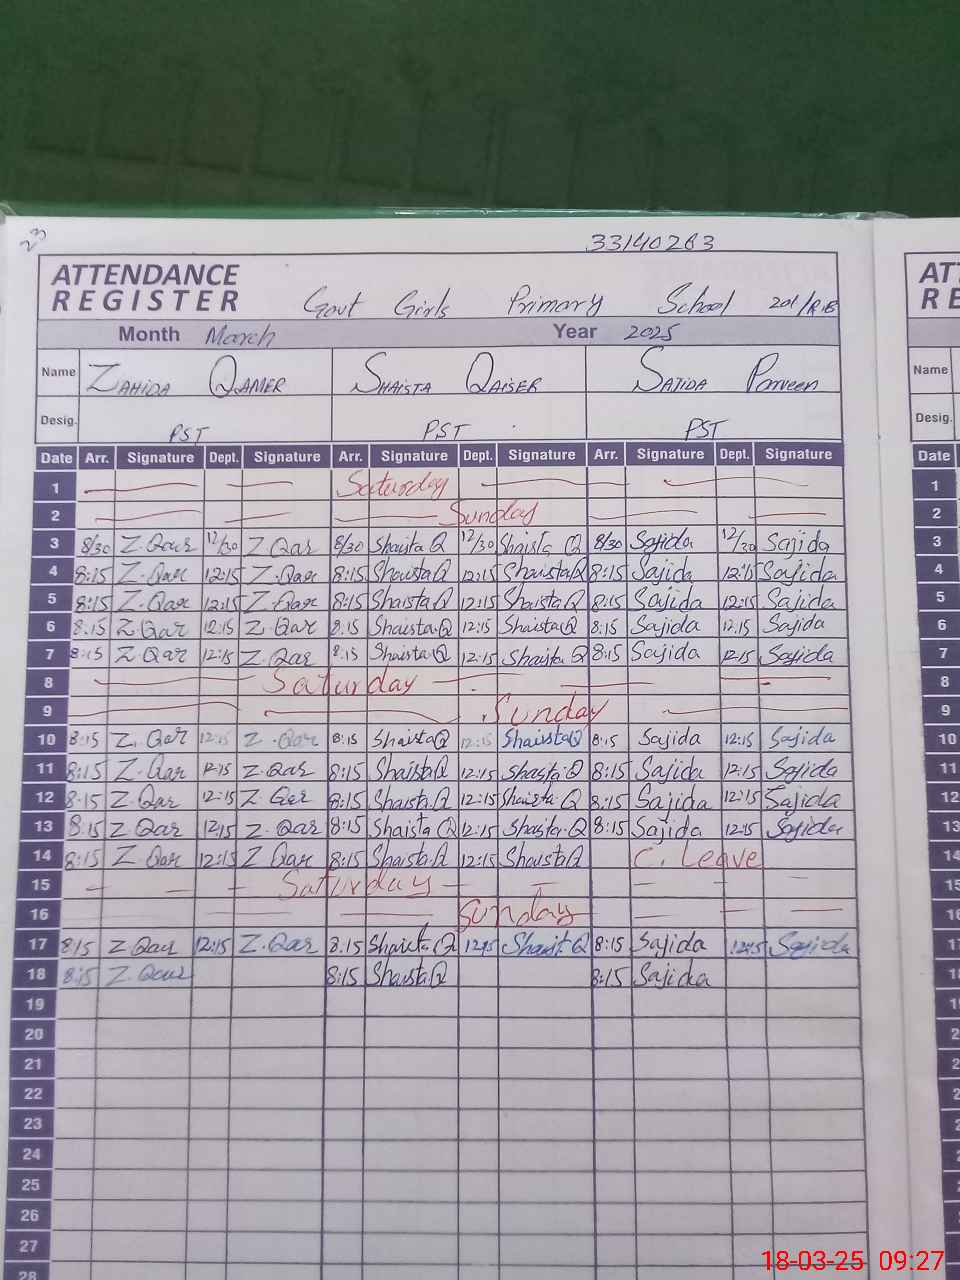 23
33140263
ATTENDANCE
REGISTER
Govt Girls Primary School 201/R.B
Month March Year 2025
Name ZAHIDA QAMER SHAISTA QAISER SAJIDA Parveen
Desig. PST PST PST
Date Arr. Signature Dept. Signature Arr. Signature Dept. Signature Arr. Signature Dept. Signature
1 Saturday
2 Sunday
3 8/30 Z.Qar 12/30 Z Qar 8/30 Shaista Q 12/30 Shaista Q 8/30 Sajida 12/30 Sajida
4 8:15 Z.Qar 12:15 Z.Qar 8:15 Shaista Q 12:15 Shaista Q 8:15 Sajida 12:15 Sajida
5 8:15 Z.Qar 12:15 Z.Qar 8:15 Shaista Q 12:15 Shaista Q 8:15 Sajida 12:15 Sajida
6 8:15 Z.Qar 12:15 Z.Qar 8:15 Shaista.Q 12:15 Shaista Q 8:15 Sajida 12:15 Sajida
7 8:15 Z.Qar 12:15 Z.Qar 8:15 Shaista.Q 12:15 Shaista.Q 8:15 Sajida 12:15 Sajida
8 Saturday
9 Sunday
10 8:15 Z.Qar 12:15 Z.Qar 8:15 Shaista Q 12:15 Shaista Q 8:15 Sajida 12:15 Sajida
11 8:15 Z.Qar 12:15 Z.Qar 8:15 Shaista Q 12:15 Shasta.Q 8:15 Sajida 12:15 Sajida
12 8:15 Z.Qar 12:15 Z Qar 8:15 Shaista.Q 12:15 Shaista.Q 8:15 Sajida 12:15 Sajida
13 8:15 Z Qar 12:15 Z.Qar 8:15 Shaista Q 12:15 Shaista.Q 8:15 Sajida 12:15 Sajida
14 8:15 Z.Qar 12:15 Z Qar 8:15 Shaista.Q 12:15 Shaista Q C. Leave
15 Saturday
16 Sunday
17 8:15 Z Qar 12:15 Z.Qar 8:15 Shaista Q 12:15 Shaista Q 8:15 Sajida 12:15 Sajida
18 8:15 Z.Qar 8:15 Shaista Q 8:15 Sajida
19
20
21
22
23
24
25
26
27
28
AT
RE
Name
Desig.
Date
1
2
3
4
5
6
7
8
9
10
11
12
13
14
15
18-03-25 09:27